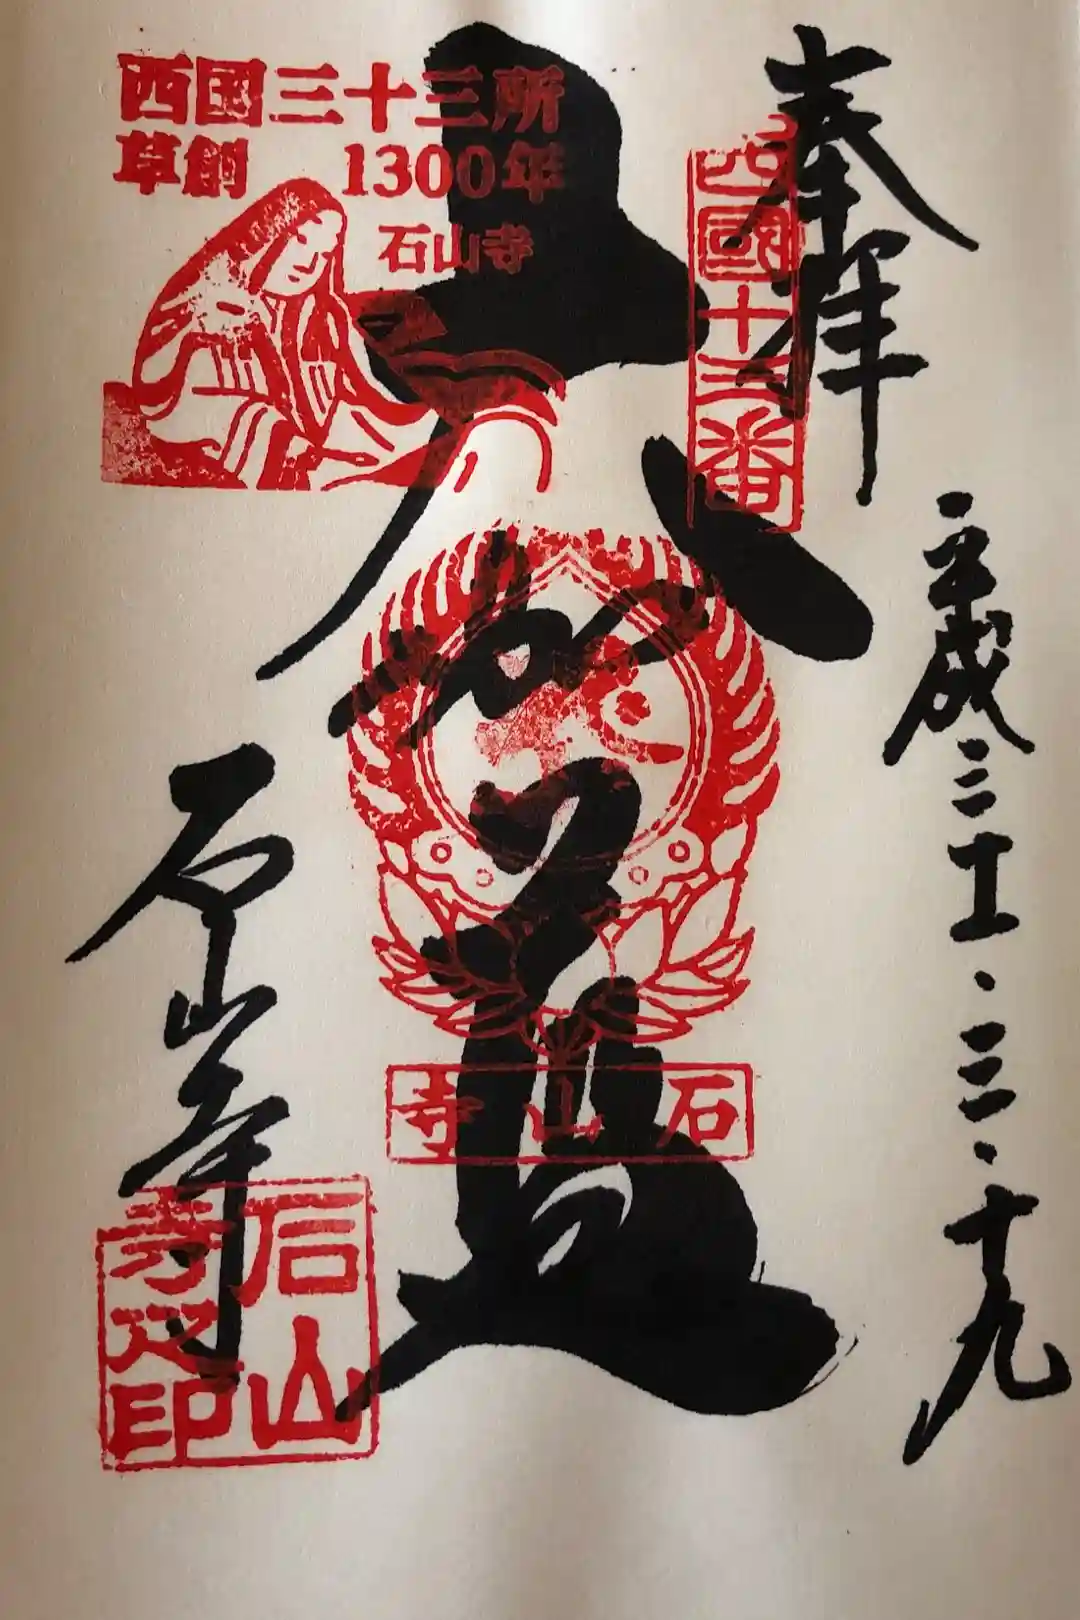 奉拝
西國十三番
平成三十一・三・十九
大伽藍
西国三十三所
草創 1300年
石山寺
石山寺
石山寺
石山
寺之印